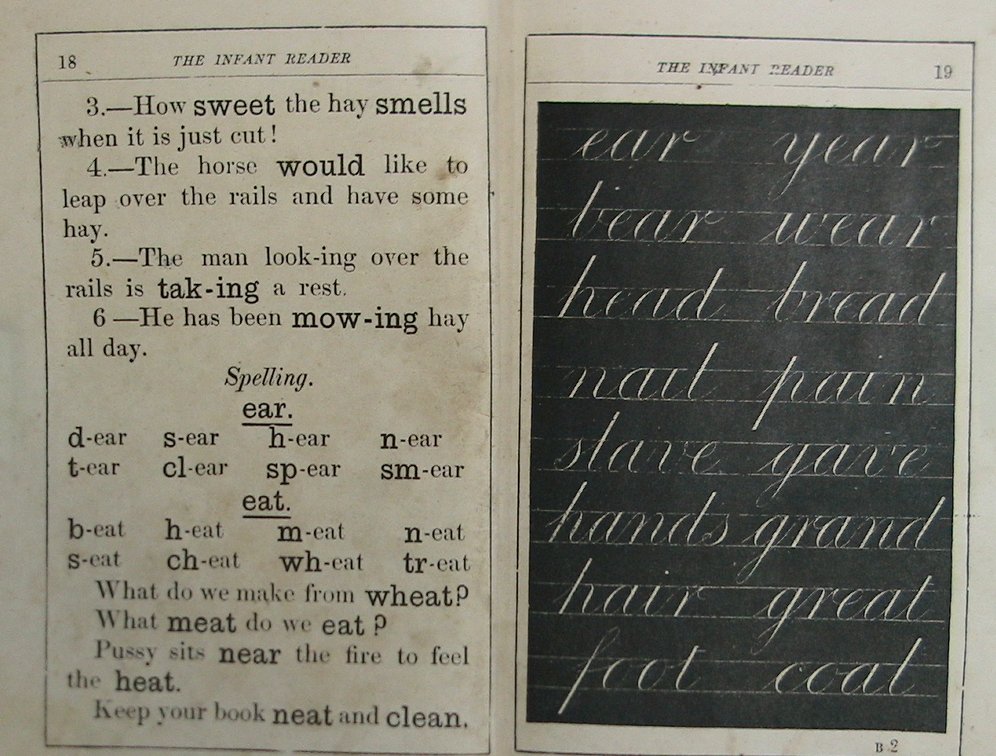 18 THE INFANT READER
3.—How sweet the hay smells
when it is just cut!
4.—The horse would like to
leap over the rails and have some
hay.
5.—The man look-ing over the
rails is tak-ing a rest.
6 —He has been mow-ing hay
all day.
Spelling.
ear.
d-ear s-ear h-ear n-ear
t-ear cl-ear sp-ear sm-ear
eat.
b-eat h-eat m-eat n-eat
s-eat ch-eat wh-eat tr-eat
What do we make from wheat?
What meat do we eat?
Pussy sits near the fire to feel
the heat.
Keep your book neat and clean.
THE INFANT READER 19
ear year
bear wear
head bread
nail pain
slave gave
hands grand
hair great
foot coat
B 2